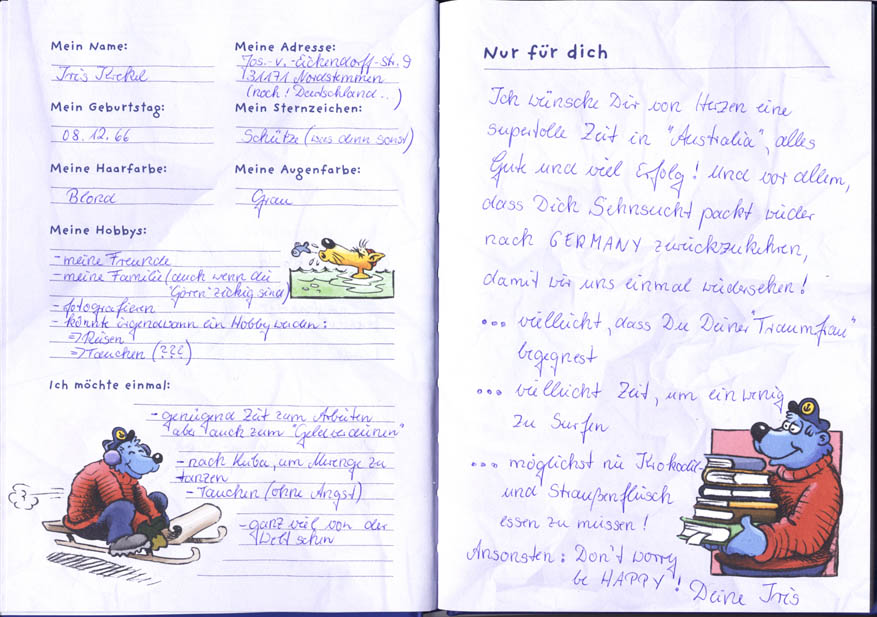 Mein Name:
Iris Krekel
Meine Adresse:
Jos.-v.-Eichendorff-Str. 9
31171 Nordstemmen
(noch! Deutschland...)
Mein Geburtstag:
08.12.66
Mein Sternzeichen:
Schütze (was denn sonst)
Meine Haarfarbe:
Blond
Meine Augenfarbe:
Grau
Meine Hobbys:
- meine Freunde
- meine Familie (auch wenn die
"Gören" zickig sind)
- fotografieren
- könnte irgendwann ein Hobby werden:
=> Reisen
=> Tauchen (???)
Ich möchte einmal:
- genügend Zeit zum Arbeiten
aber auch zum "Geldverdienen"
- nach Kuba, um Merenge zu
tanzen
- Tauchen (ohne Angst)
- ganz viel von der
Welt sehn
Nur für dich
Ich wünsche Dir von Herzen eine
supertolle Zeit in "Australia", alles
Gute und viel Erfolg! Und vor allem,
dass Dich Sehnsucht packt wieder
nach GERMANY zurückzukehren,
damit wir uns einmal wiedersehen!
... vielleicht, dass Du Deiner "Traumfrau"
begegnest
... vielleicht Zeit, um ein wenig
zu Surfen
... möglichst nie Krokodil-
und Straußenfleisch
essen zu müssen!
Ansonsten: Don't worry
be HAPPY!
Deine Iris